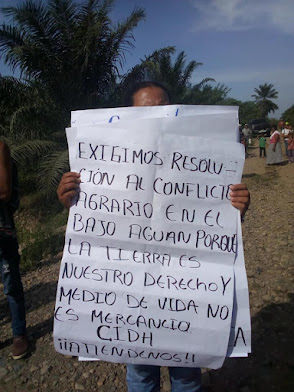 EXIGIMOS RESOLU-
CIÓN AL CONFLICTO
AGRARIO EN EL
BAJO AGUAN PORQUE
LA TIERRA ES
NUESTRO DERECHO Y
MEDIO DE VIDA NO
ES MERCANCIA
CIDH
¡¡ATIENDENOS!!
A